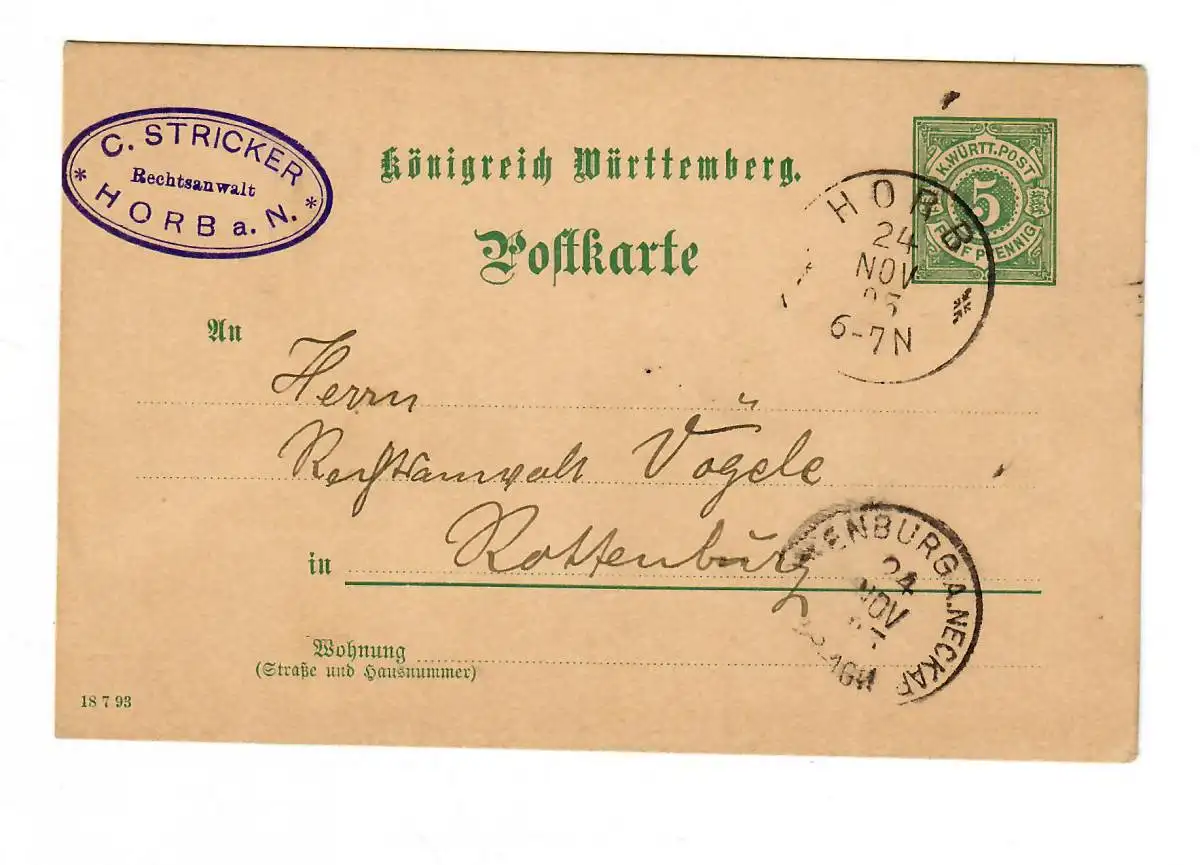 C. STRICKER
Rechtsanwalt
* HORB a. N. *
Königreich Württemberg.
Postkarte
K.WÜRTT.POST
5
FÜNF PFENNIG
HORB
24
NOV
6-7N
An
Herrn
Rechtsanwalt Vögele
in Rottenburg
TENBURG A. NECKAR
24
NOV
Wohnung
(Straße und Hausnummer)
18 7 93